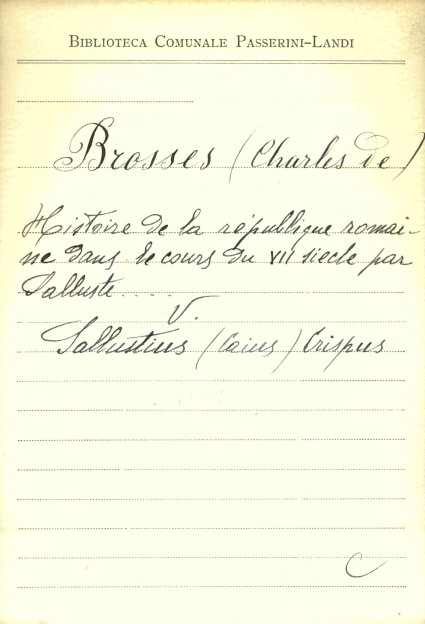 BIBLIOTECA COMUNALE PASSERINI-LANDI
Brosses (Charles de)
Histoire de la république romai-
ne dans le cours du VII siecle par
Salluste....
V.
Sallustius (Caius) Crispus
C